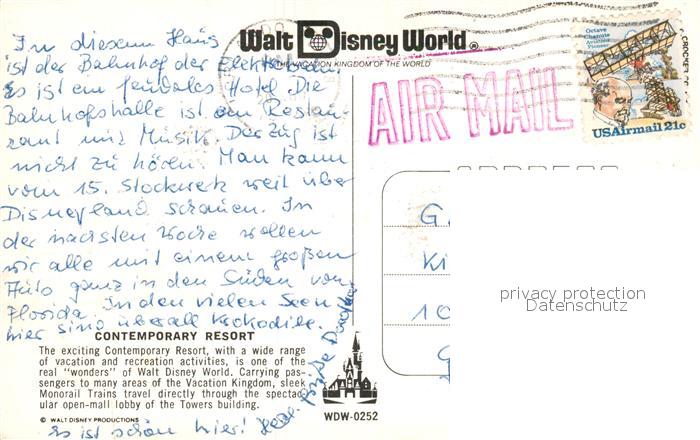 Walt Disney World®
THE VACATION KINGDOM OF THE WORLD
Octave
Chanute
Aviation
Pioneer
USAirmail 21c
AIR MAIL
In diesem Haus
ist der Bahnhof der
Es ist ein feudales Hotel. Die
Bahnhofshalle ist ein Restau-
rant mit Musik. Der Zug ist
nicht zu hören. Man kann
vom 15. Stockwerk weit über
Disneyland schauen. In
der nächsten Woche wollen
wir alle mit einem großen
Auto ganz in den Süden von
Florida. In den vielen Seen
hier sind überall Krokodile.
Es ist schön hier!
CONTEMPORARY RESORT
The exciting Contemporary Resort, with a wide range
of vacation and recreation activities, is one of the
real "wonders" of Walt Disney World. Carrying pas-
sengers to many areas of the Vacation Kingdom, sleek
Monorail Trains travel directly through the spectac-
ular open-mall lobby of the Towers building.
© WALT DISNEY PRODUCTIONS
WDW-0252
ADDRESS
G
Ki
10
privacy protection
Datenschutz